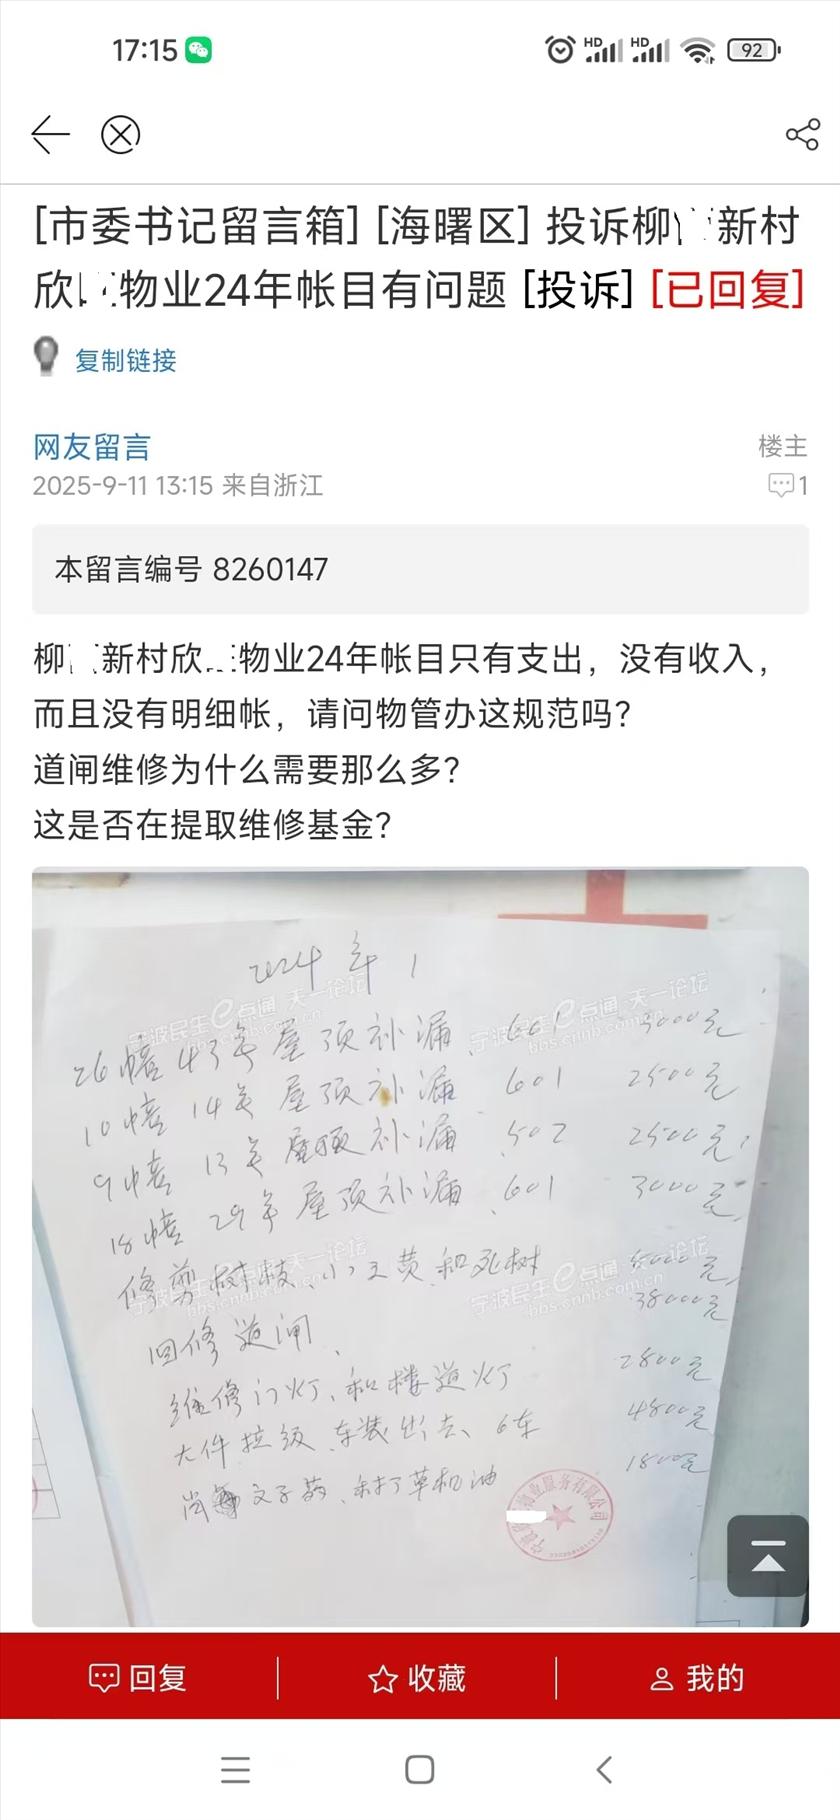 17:15
HD HD 92
[市委书记留言箱] [海曙区] 投诉柳 新村
欣 物业24年帐目有问题 [投诉] [已回复]
复制链接
网友留言 楼主
2025-9-11 13:15 来自浙江 1
本留言编号 8260147
柳 新村欣 物业24年帐目只有支出，没有收入，
而且没有明细帐，请问物管办这规范吗？
道闸维修为什么需要那么多？
这是否在提取维修基金？
2024年1
宁波民生e点通 天一论坛
bbs.cnnb.com.cn
26幢43号屋顶补漏、601 3000元
10幢14号屋顶补漏 601 2500元
9幢13号屋顶补漏 502 2500元
18幢29号屋顶补漏、601 3000元
修剪树枝、 和死树 8000元
38000元
回修道闸、
维修门灯、和楼道灯 2800元
大件垃圾、车装出去、6车 4800元
蚊子药、和打草机油 1800元
物业服务有限公司
回复 收藏 我的